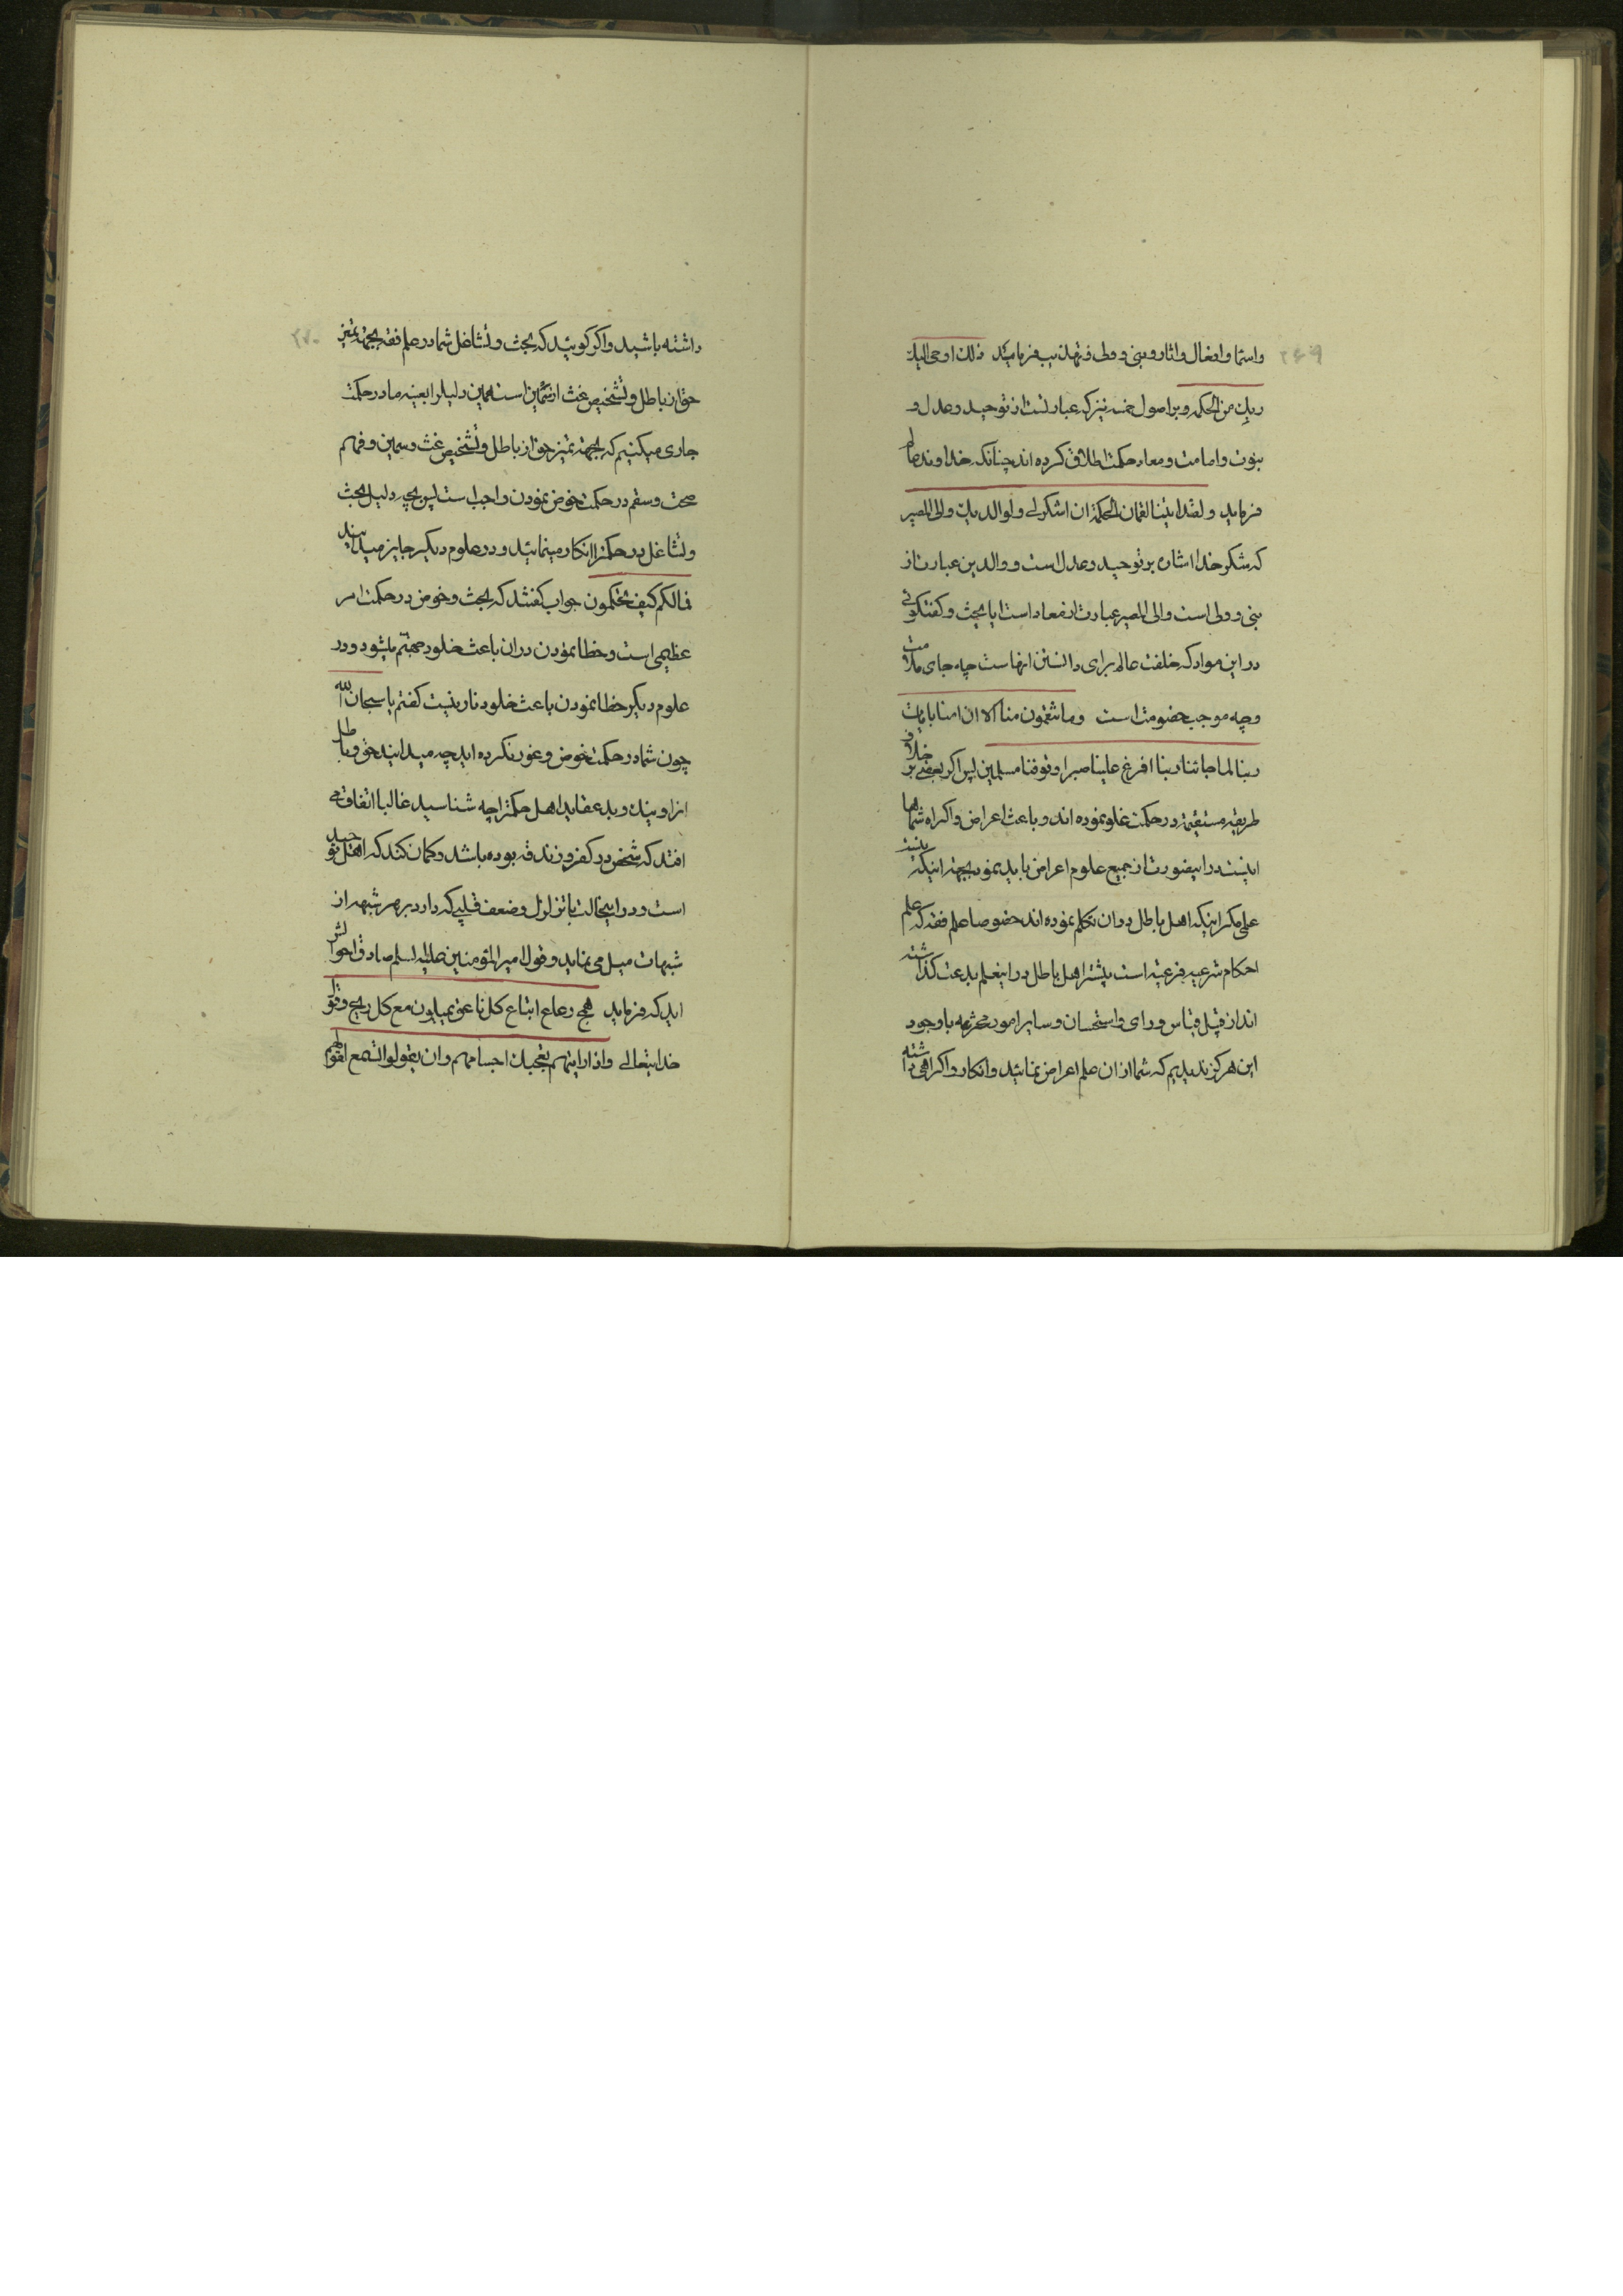 ۲۶۹
واسما وافعال واثار و بنی و ولی و تهذیب فرمایند ذلك اوحی الیك
ربك من الحکمه و بر اصول خمسه نیز که عبارتست از توحید و عدل و
نبوت و امامت و معاد حکمت اطلاق کرده اند چنانکه خداوند عالم
فرماید ولقد اتینا لقمان الحکمة ان اشکر لی ولوالدیك والی المصیر
که شکر خدا اشاره بر توحید و عدل است و والدین عبارت از
نبی و ولی است والی المصیر عبارت از معاد است ایا بحث و کفتکوئی
در این مواد که خلقت عالم برای دانستن انهاست چه جای ملامت
و چه موجب خصومت است وما تنقمون منا الا ان امنا بایات
ربنا لما جائتنا ربنا افرغ علینا صبرا وتوفنا مسلمین پس اکر بعضی بر خلاف
طریقه مستقیمه در حکمت غلو نموده اند و باعث اعراض و اکراه شماها
اینست در اینصورت از جمیع علوم اعراض باید نمود بجهة اینکه نیست
علمی مکر اینکه اهل باطل در ان تکلم نموده اند خصوصا علم فقه که علم
احکام شرعیه فرعیه است بیشتر اهل باطل در اینعلم بدعت کذاشته
اند از قبیل قیاس و رای و استحسان و سایر امور محرمه باوجود
این هرکز ندیدیم که شما از ان علم اعراض نمائید و انکار و اکراهی داشته
۲۷۰
داشته باشید و اکر کوئید که بحث و تشاغل شما در علم فقه بجهة تمیز
حق از باطل و تشخیص غث از ثمین است همین دلیل را بعینه ما در حکمت
جاری میکنیم که بجهة تمیز حق از باطل و تشخیص غث و سمین و فهم
صحت و سقم در حکمت خوض نمودن واجب است پس بچه دلیل بحث
و تشاغل در حکمترا انکار مینمائید و در علوم دیکر جایز میدانید
فمالکم کیف تحکمون جواب کفتند که بحث و خوض در حکمت امر
عظیمی است و خطا نمودن در ان باعث خلود جهنم میشود و در
علوم دیکر خطا نمودن باعث خلود نار نیست کفتم یا سبحان الله
چون شما در حکمت خوض و غور نکرده اید چه میدانید حق و باطل
انرا و نیك و بد عقاید اهل حکمترا چه شناسید غالبا اتفاق می
افتد که شخص در کفر و زندقه بوده باشد و کمان کند که اهل توحید
است و در اینحالت با تزلزل و ضعف قلبی که دارد بر هر شبهه از
شبهات میل می نماید و قول امیر المؤمنین علیه السلم صادق احوالش
اید که فرماید همج رعاع اتباع کل ناعق یمیلون مع کل ریح و قول
خدایتعالی واذا رایتهم تعجبك اجسامهم وان یقولوا تسمع لقولهم